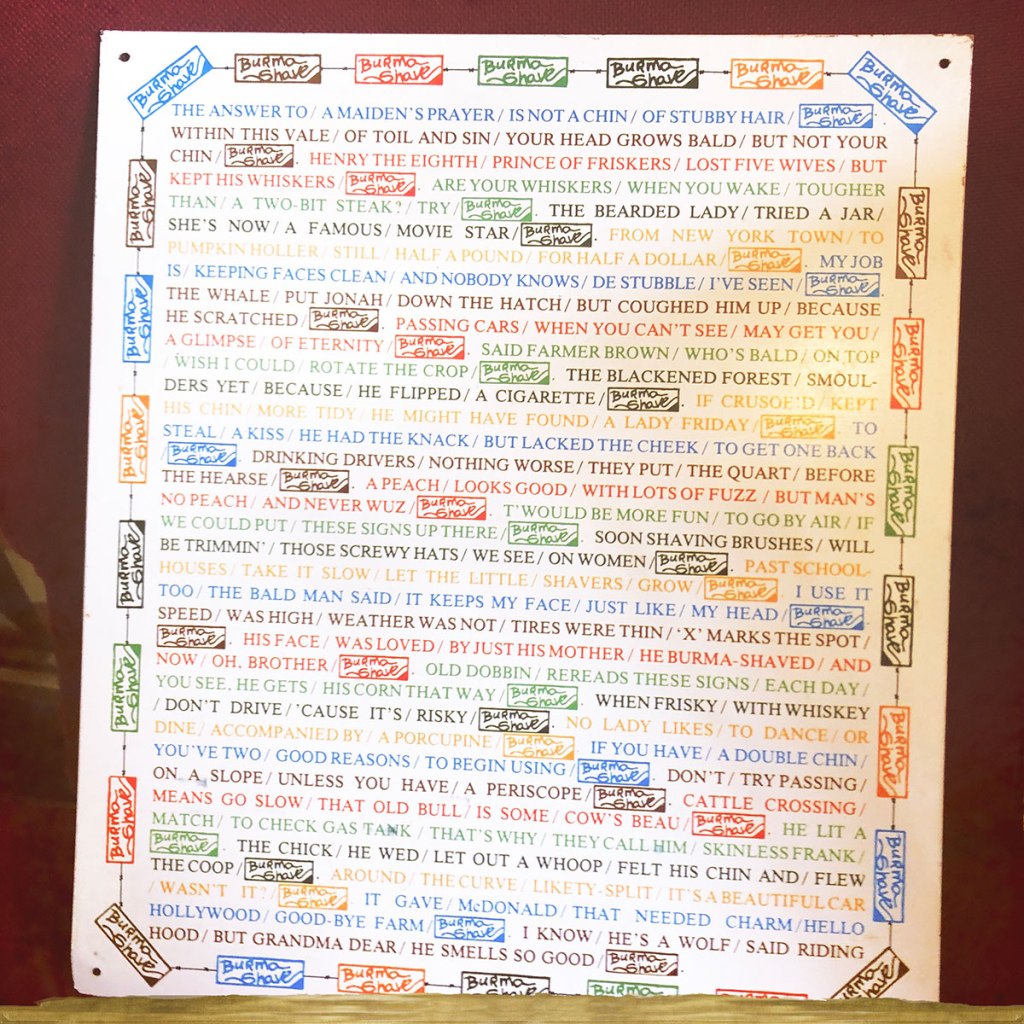 Burma-Shave Burma-Shave Burma-Shave Burma-Shave Burma-Shave Burma-Shave Burma-Shave
THE ANSWER TO/ A MAIDEN'S PRAYER/ IS NOT A CHIN/ OF STUBBY HAIR/ Burma-Shave.
WITHIN THIS VALE/ OF TOIL AND SIN/ YOUR HEAD GROWS BALD/ BUT NOT YOUR
CHIN/ Burma-Shave. HENRY THE EIGHTH/ PRINCE OF FRISKERS/ LOST FIVE WIVES/ BUT
KEPT HIS WHISKERS/ Burma-Shave. ARE YOUR WHISKERS/ WHEN YOU WAKE/ TOUGHER
THAN/ A TWO-BIT STEAK?/ TRY/ Burma-Shave. THE BEARDED LADY/ TRIED A JAR/
SHE'S NOW/ A FAMOUS/ MOVIE STAR/ Burma-Shave. FROM NEW YORK TOWN/ TO
PUMPKIN HOLLER/ STILL/ HALF A POUND/ FOR HALF A DOLLAR/ Burma-Shave. MY JOB
IS/ KEEPING FACES CLEAN/ AND NOBODY KNOWS/ DE STUBBLE/ I'VE SEEN/ Burma-Shave.
THE WHALE/ PUT JONAH/ DOWN THE HATCH/ BUT COUGHED HIM UP/ BECAUSE
HE SCRATCHED/ Burma-Shave. PASSING CARS/ WHEN YOU CAN'T SEE/ MAY GET YOU/
A GLIMPSE/ OF ETERNITY/ Burma-Shave. SAID FARMER BROWN/ WHO'S BALD/ ON TOP
/ WISH I COULD/ ROTATE THE CROP/ Burma-Shave. THE BLACKENED FOREST/ SMOUL-
DERS YET/ BECAUSE/ HE FLIPPED/ A CIGARETTE/ Burma-Shave. IF CRUSOE'D/ KEPT
HIS CHIN/ MORE TIDY/ HE MIGHT HAVE FOUND/ A LADY FRIDAY/ Burma-Shave. TO
STEAL/ A KISS/ HE HAD THE KNACK/ BUT LACKED THE CHEEK/ TO GET ONE BACK
/ Burma-Shave. DRINKING DRIVERS/ NOTHING WORSE/ THEY PUT/ THE QUART/ BEFORE
THE HEARSE/ Burma-Shave. A PEACH/ LOOKS GOOD/ WITH LOTS OF FUZZ/ BUT MAN'S
NO PEACH/ AND NEVER WUZ/ Burma-Shave. T'WOULD BE MORE FUN/ TO GO BY AIR/ IF
WE COULD PUT/ THESE SIGNS UP THERE/ Burma-Shave. SOON SHAVING BRUSHES/ WILL
BE TRIMMIN'/ THOSE SCREWY HATS/ WE SEE/ ON WOMEN/ Burma-Shave. PAST SCHOOL-
HOUSES/ TAKE IT SLOW/ LET THE LITTLE/ SHAVERS/ GROW/ Burma-Shave. I USE IT
TOO/ THE BALD MAN SAID/ IT KEEPS MY FACE/ JUST LIKE/ MY HEAD/ Burma-Shave.
SPEED/ WAS HIGH/ WEATHER WAS NOT/ TIRES WERE THIN/ 'X' MARKS THE SPOT/
Burma-Shave. HIS FACE/ WAS LOVED/ BY JUST HIS MOTHER/ HE BURMA-SHAVED/ AND
NOW/ OH, BROTHER/ Burma-Shave. OLD DOBBIN/ REREADS THESE SIGNS/ EACH DAY/
YOU SEE, HE GETS/ HIS CORN THAT WAY/ Burma-Shave. WHEN FRISKY/ WITH WHISKEY
/ DON'T DRIVE/ 'CAUSE IT'S/ RISKY/ Burma-Shave. NO LADY LIKES/ TO DANCE/ OR
DINE/ ACCOMPANIED BY/ A PORCUPINE/ Burma-Shave. IF YOU HAVE/ A DOUBLE CHIN/
YOU'VE TWO/ GOOD REASONS/ TO BEGIN USING/ Burma-Shave. DON'T/ TRY PASSING/
ON A SLOPE/ UNLESS YOU HAVE/ A PERISCOPE/ Burma-Shave. CATTLE CROSSING/
MEANS GO SLOW/ THAT OLD BULL/ IS SOME/ COW'S BEAU/ Burma-Shave. HE LIT A
MATCH/ TO CHECK GAS TANK/ THAT'S WHY/ THEY CALL HIM/ SKINLESS FRANK/
Burma-Shave. THE CHICK/ HE WED/ LET OUT A WHOOP/ FELT HIS CHIN AND/ FLEW
THE COOP/ Burma-Shave. AROUND/ THE CURVE/ LIKETY-SPLIT/ IT'S A BEAUTIFUL CAR
/ WASN'T IT?/ Burma-Shave. IT GAVE/ McDONALD/ THAT NEEDED CHARM/ HELLO
HOLLYWOOD/ GOOD-BYE FARM/ Burma-Shave. I KNOW/ HE'S A WOLF/ SAID RIDING
HOOD/ BUT GRANDMA DEAR/ HE SMELLS SO GOOD/ Burma-Shave.
Burma-Shave
Burma-Shave
Burma-Shave
Burma-Shave
Burma-Shave
Burma-Shave
Burma-Shave
Burma-Shave
Burma-Shave
Burma-Shave
Burma-Shave
Burma-Shave
Burma-Shave Burma-Shave Burma-Shave Burma-Shave Burma-Shave Burma-Shave